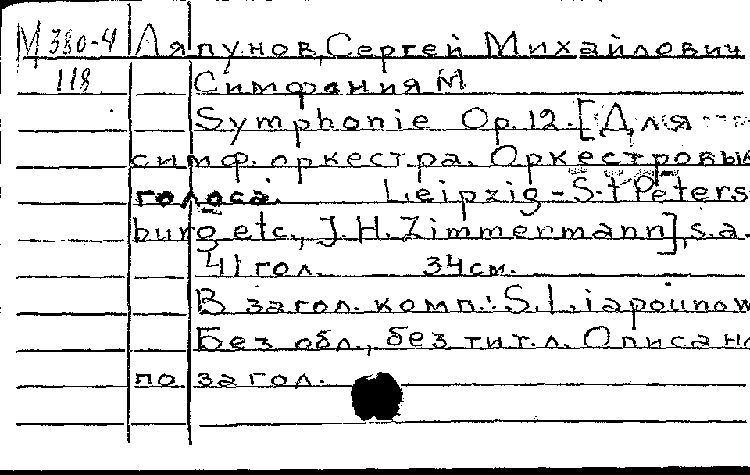 М 380-4 Ляпунов, Сергей Михайлович
118 Симфания М
Symphonie Op. 12. [Для
симф. оркестра. Оркестровые
голоса. Leipzig - S-t Peters
burg etc., J. H. Zimmermann], s.a.
41 гол. 34 см.
В загол. комп.: S. Liapounow
Без обл., без тит. л. Описано
по загол.